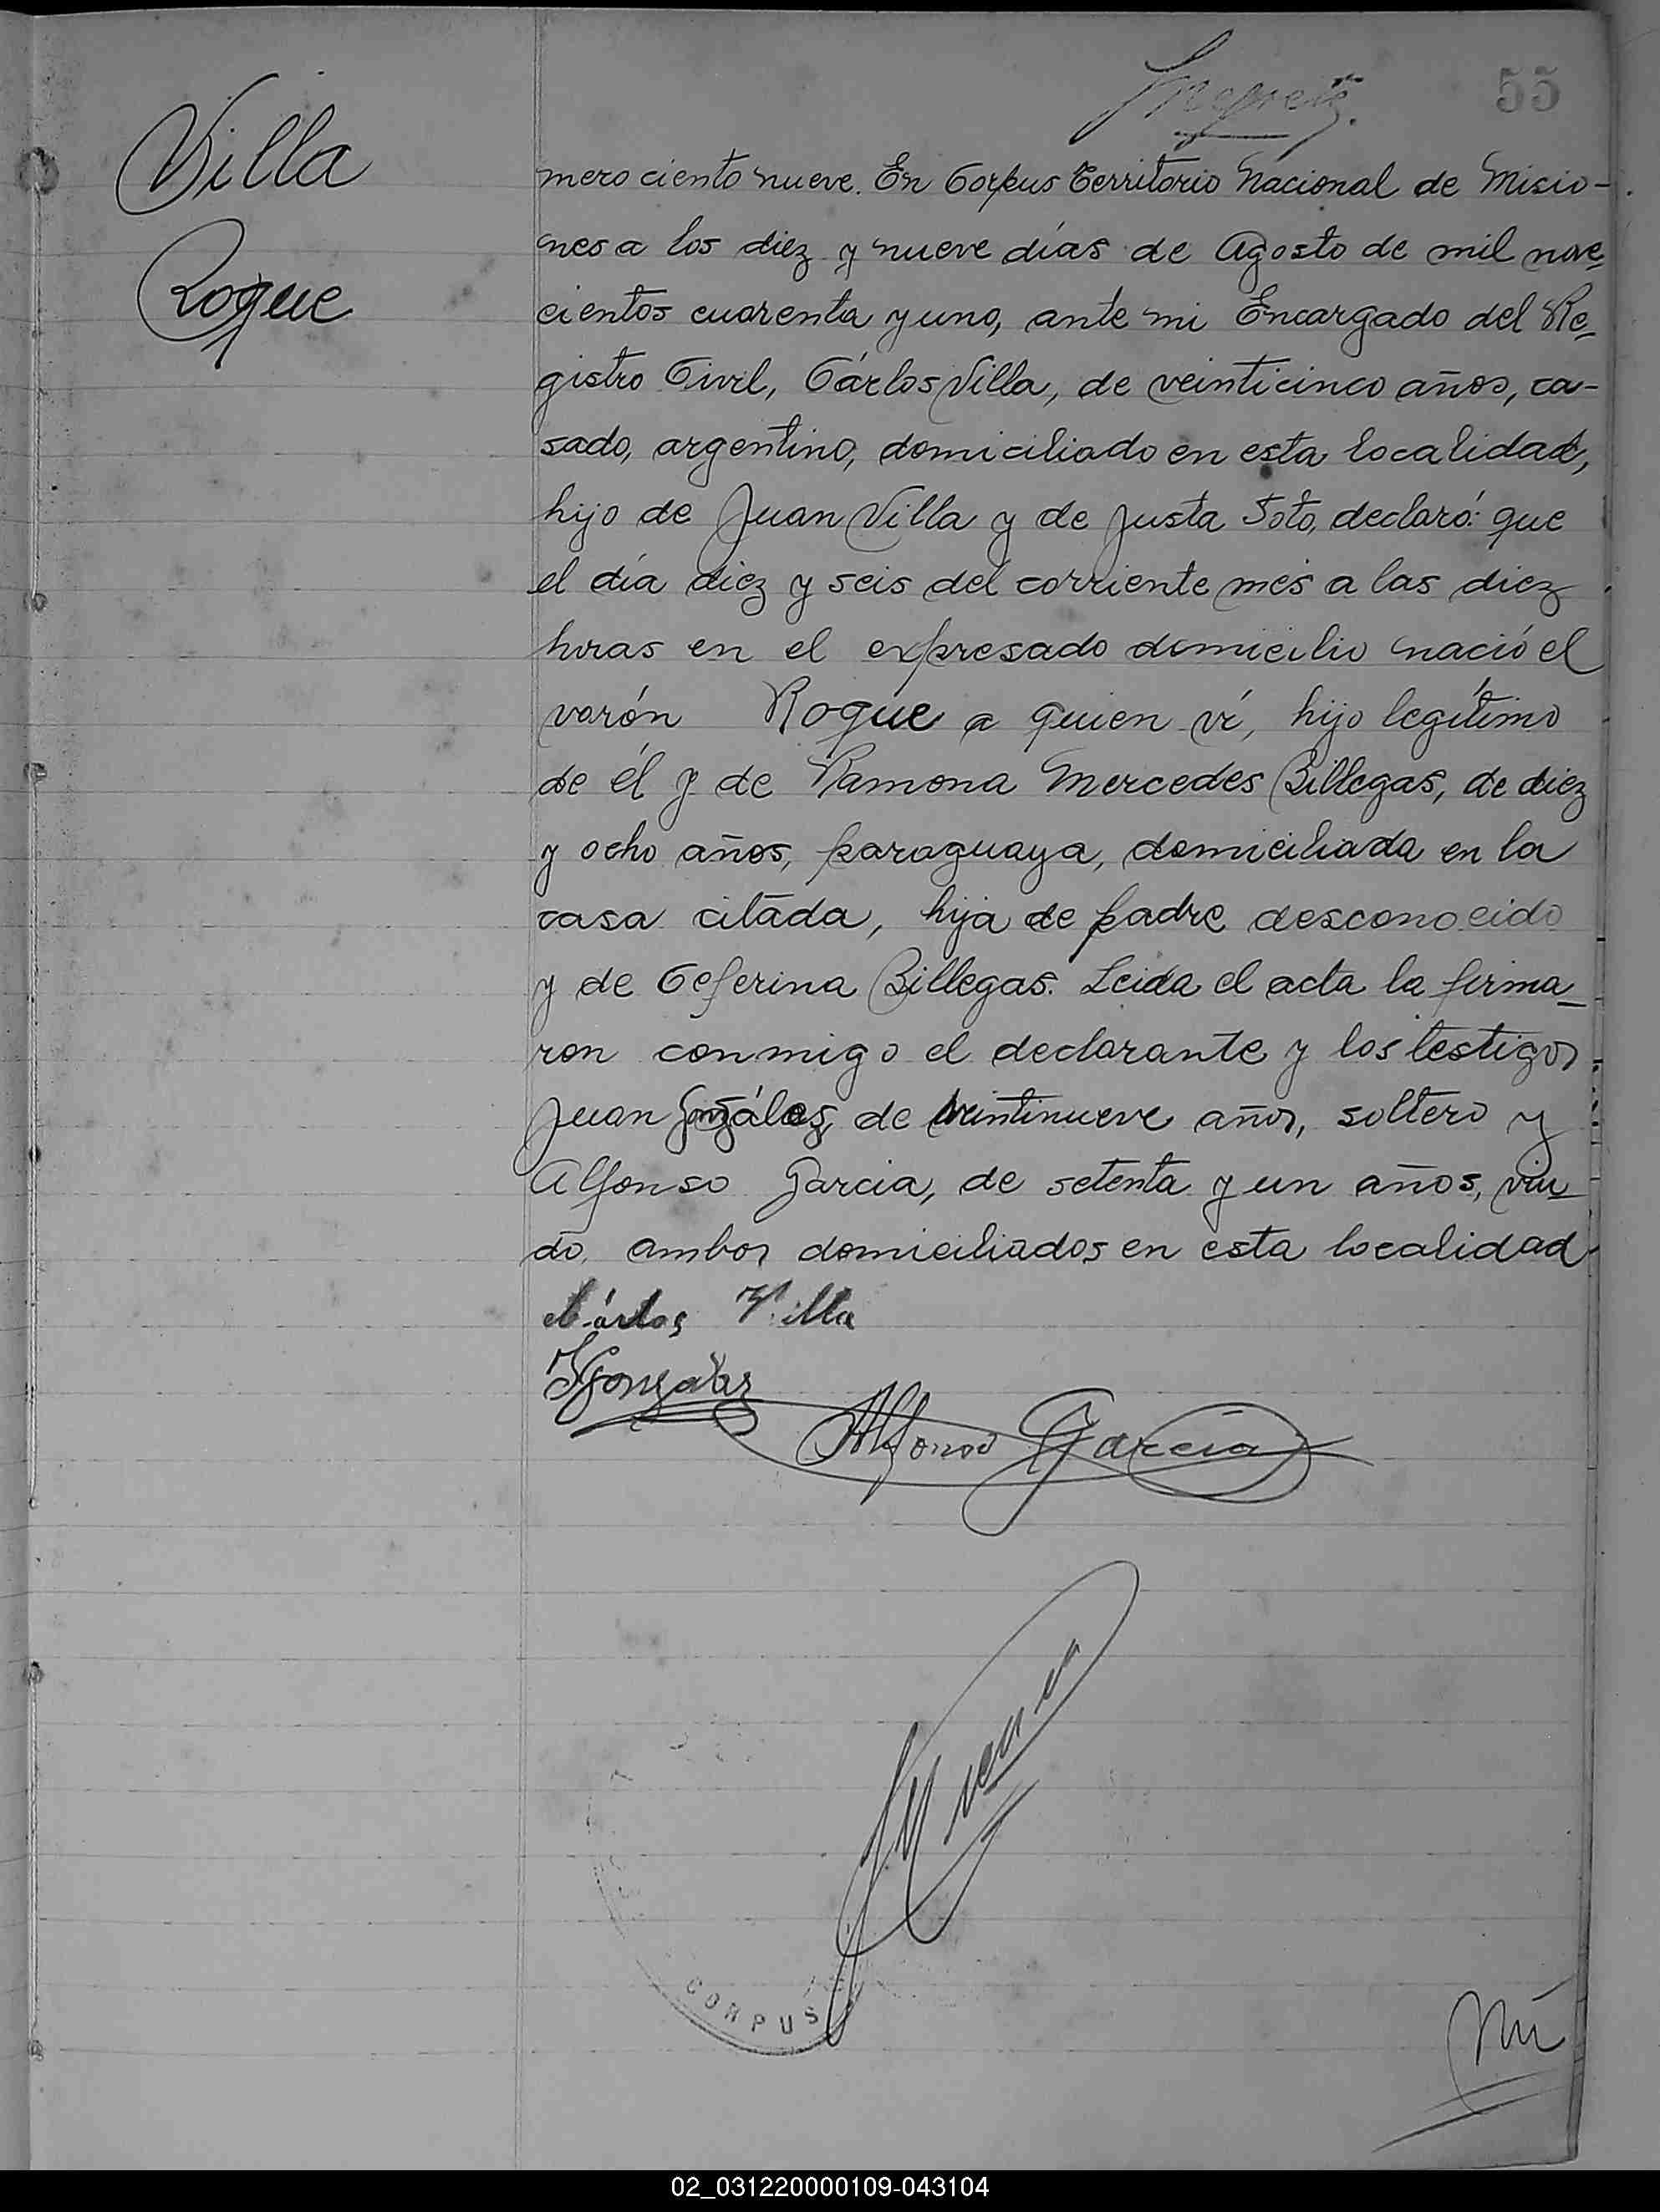 55
Villa
Roque
mero ciento nueve. En Corpus Territorio Nacional de Misio-
nes a los diez y nueve días de Agosto de mil nove-
cientos cuarenta y uno, ante mi Encargado del Re-
gistro Civil, Cárlos Villa, de veinticinco años, ca-
sado, argentino, domiciliado en esta localidad,
hijo de Juan Villa y de Justa Soto, declaró: que
el día diez y seis del corriente mes a las diez
horas en el expresado domicilio nació el
varón Roque a quien ví, hijo legítimo
de él y de Ramona Mercedes Billegas, de diez
y ocho años, paraguaya, domiciliada en la
casa citada, hija de padre desconocido
y de Ceferina Billegas. Leida el acta la firma-
ron conmigo el declarante y los testigos
Juan Gonzáles, de veintinueve años, soltero y
Alfonso Garcia, de setenta y un años, viu-
do, ambos domiciliados en esta localidad
Cárlos Villa
JGonzalez
Alfonso Garcia
CORPUS
Nú
02_031220000109-043104